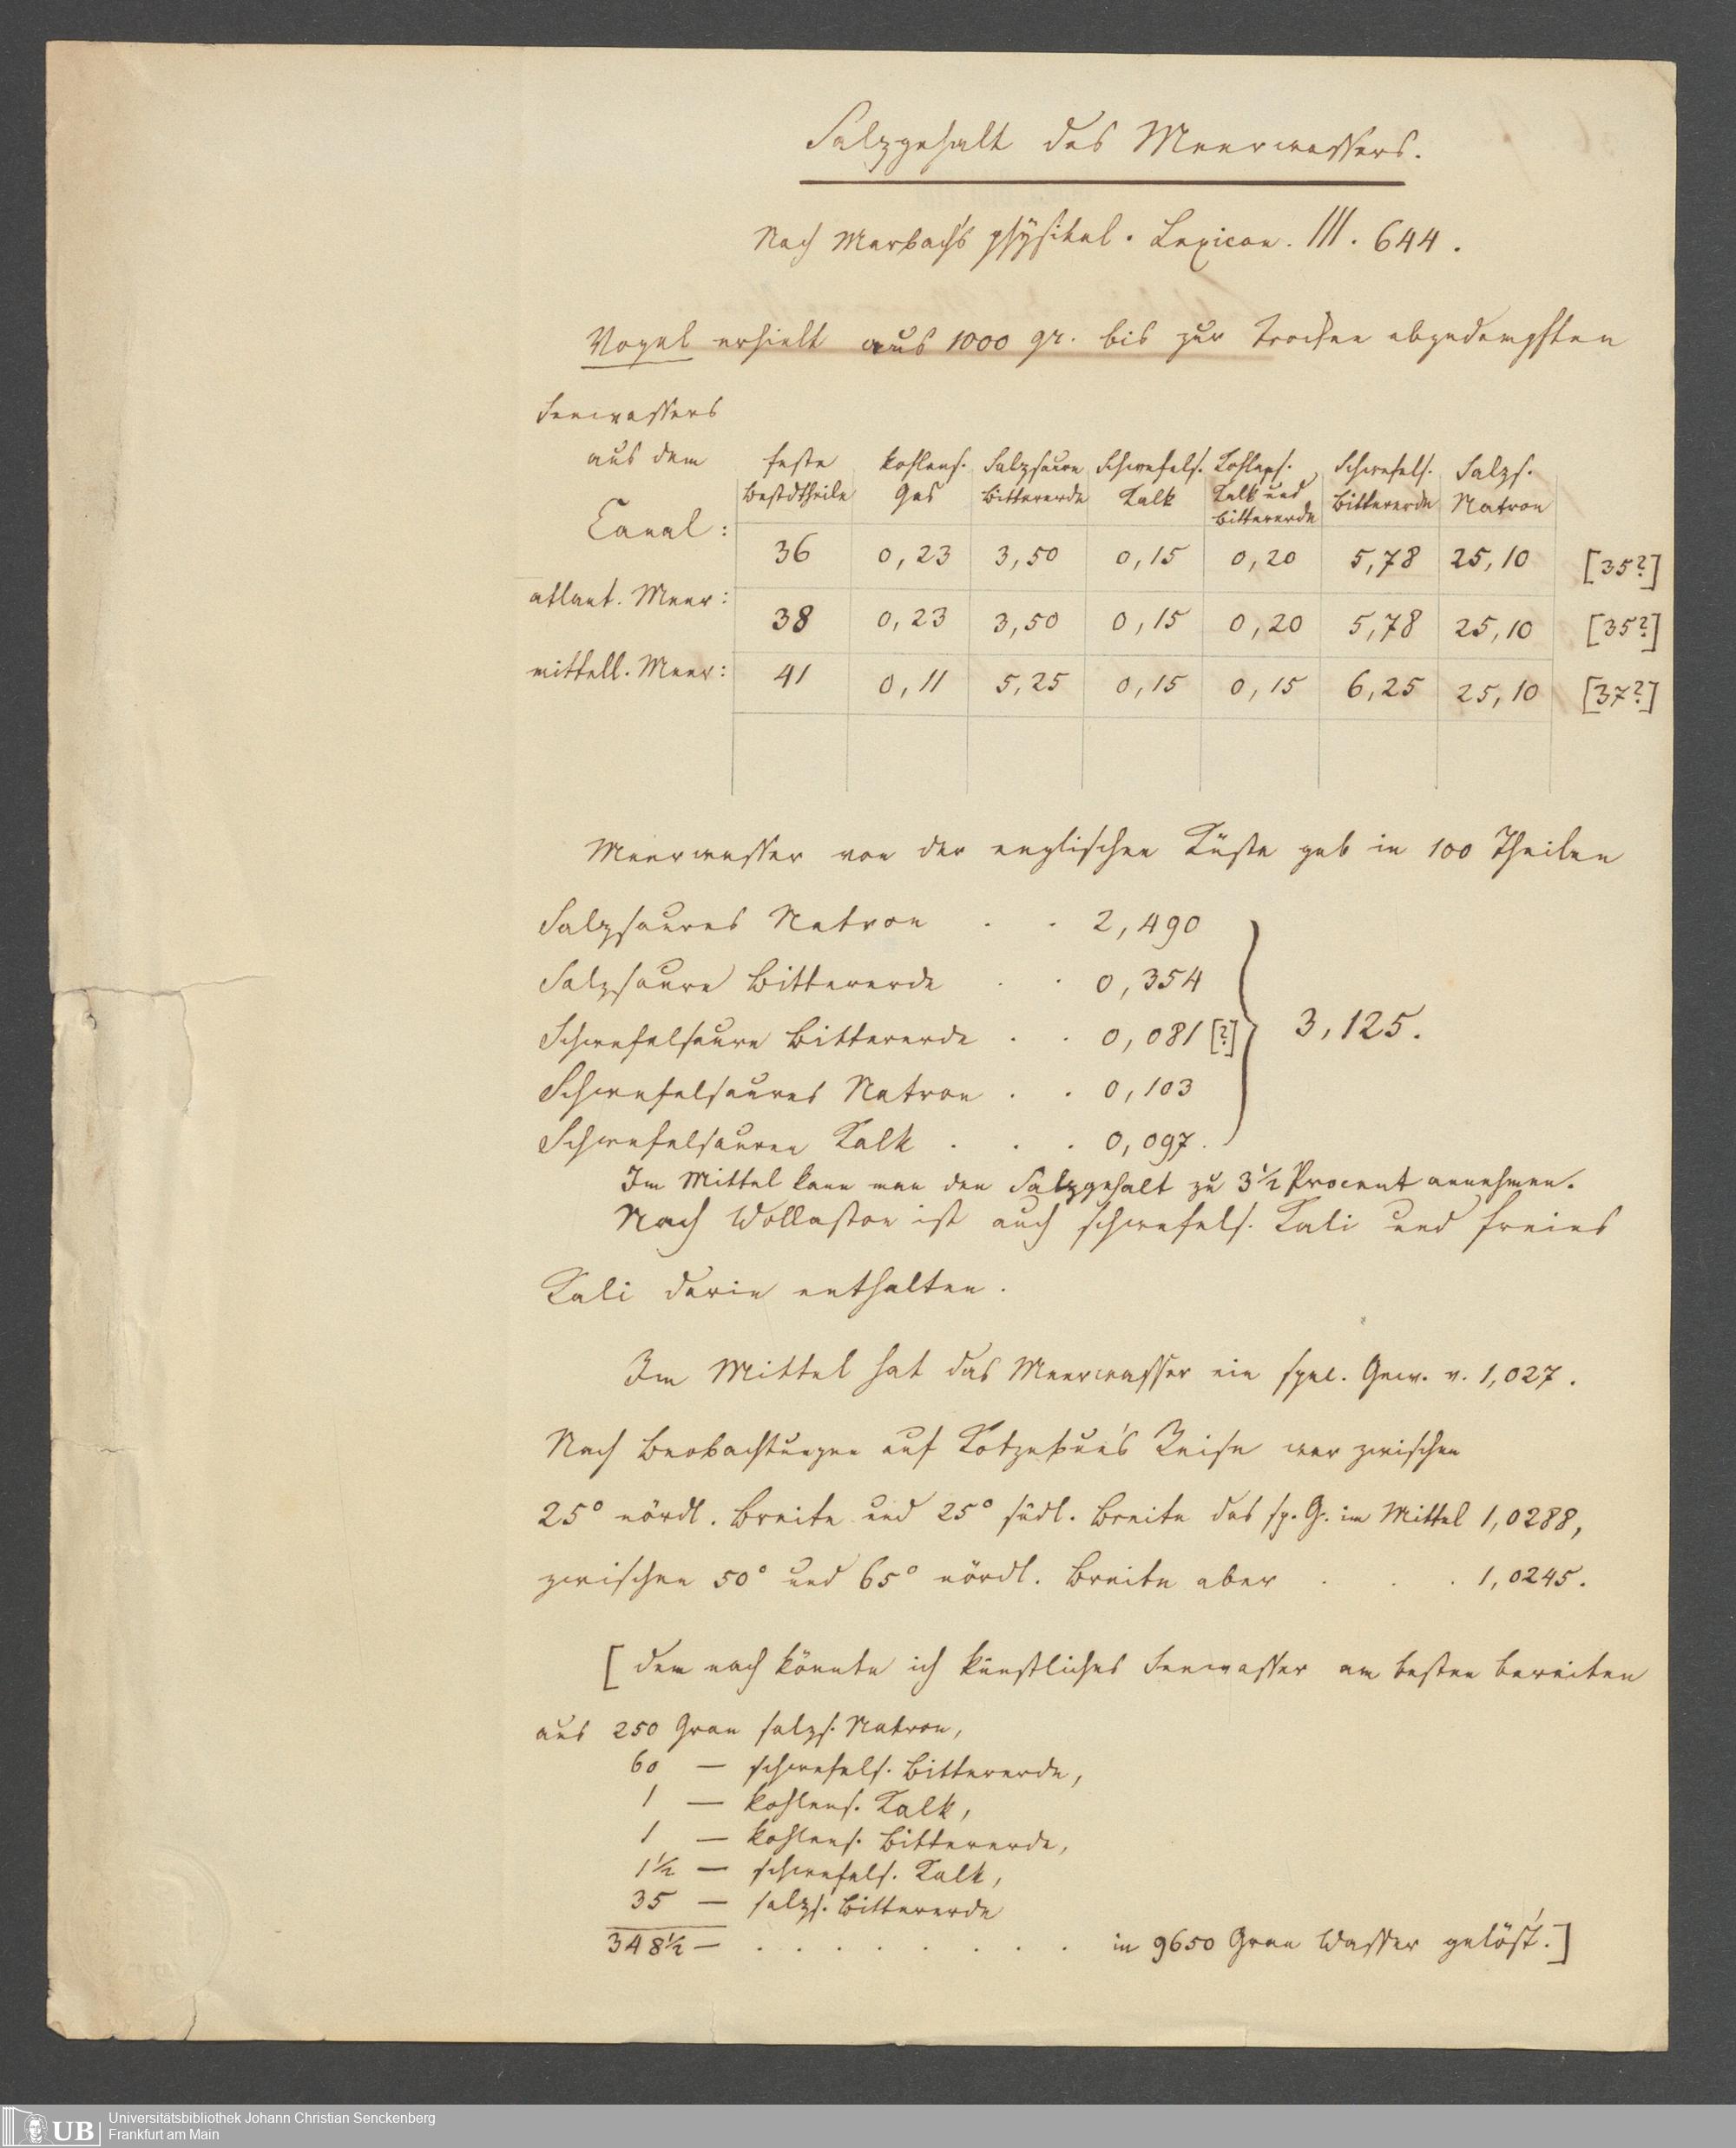 Salzgehalt des Meerwassers.
Nach Marbach's physikal. Lexicon. III. 644.
Vogel erhielt aus 1000 gr. bis zur Trockne abgedampften
Seewassers
aus dem feste kohlens. Salzsaure Schwefels. Kohlens. Schwefels. Salzs.
Bestdtheile Gas Bittererde Kalk Kalk und Bittererde Natron
Bittererde
Canal: 36 0,23 3,50 0,15 0,20 5,78 25,10 [35?]
atlant. Meer: 38 0,23 3,50 0,15 0,20 5,78 25,10 [35?]
mittell. Meer: 41 0,11 5,25 0,15 0,15 6,25 25,10 [37?]
Meerwasser von der englischen Küste gab in 100 Theilen
Salzsaures Natron . . 2,490
Salzsaure Bittererde . . 0,354
Schwefelsaure Bittererde . . 0,081 [?] 3,125.
Schwefelsaures Natron . . 0,103
Schwefelsauren Kalk . . . 0,097.
Im Mittel kann man den Salzgehalt zu 3½ Procent annehmen.
Nach Wollaston ist auch schwefels. Kali und freies
Kali darin enthalten.
Im Mittel hat das Meerwasser ein spec. Gew. v. 1,027.
Nach Beobachtungen auf Kotzebue's Reise war zwischen
25° nördl. Breite und 25° südl. Breite das sp. G. im Mittel 1,0288,
zwischen 50° und 65° nördl. Breite aber . . . 1,0245.
[Dem nach könnte ich künstliches Seewasser am besten bereiten
aus 250 Gran salzs. Natron,
60 — schwefels. Bittererde,
1 — kohlens. Kalk,
1 — kohlens. Bittererde,
1½ — schwefels. Kalk,
35 — salzs. Bittererde
348½ — . . . . . . . . . in 9650 Gran Wasser gelöst.]
UB Universitätsbibliothek Johann Christian Senckenberg
Frankfurt am Main